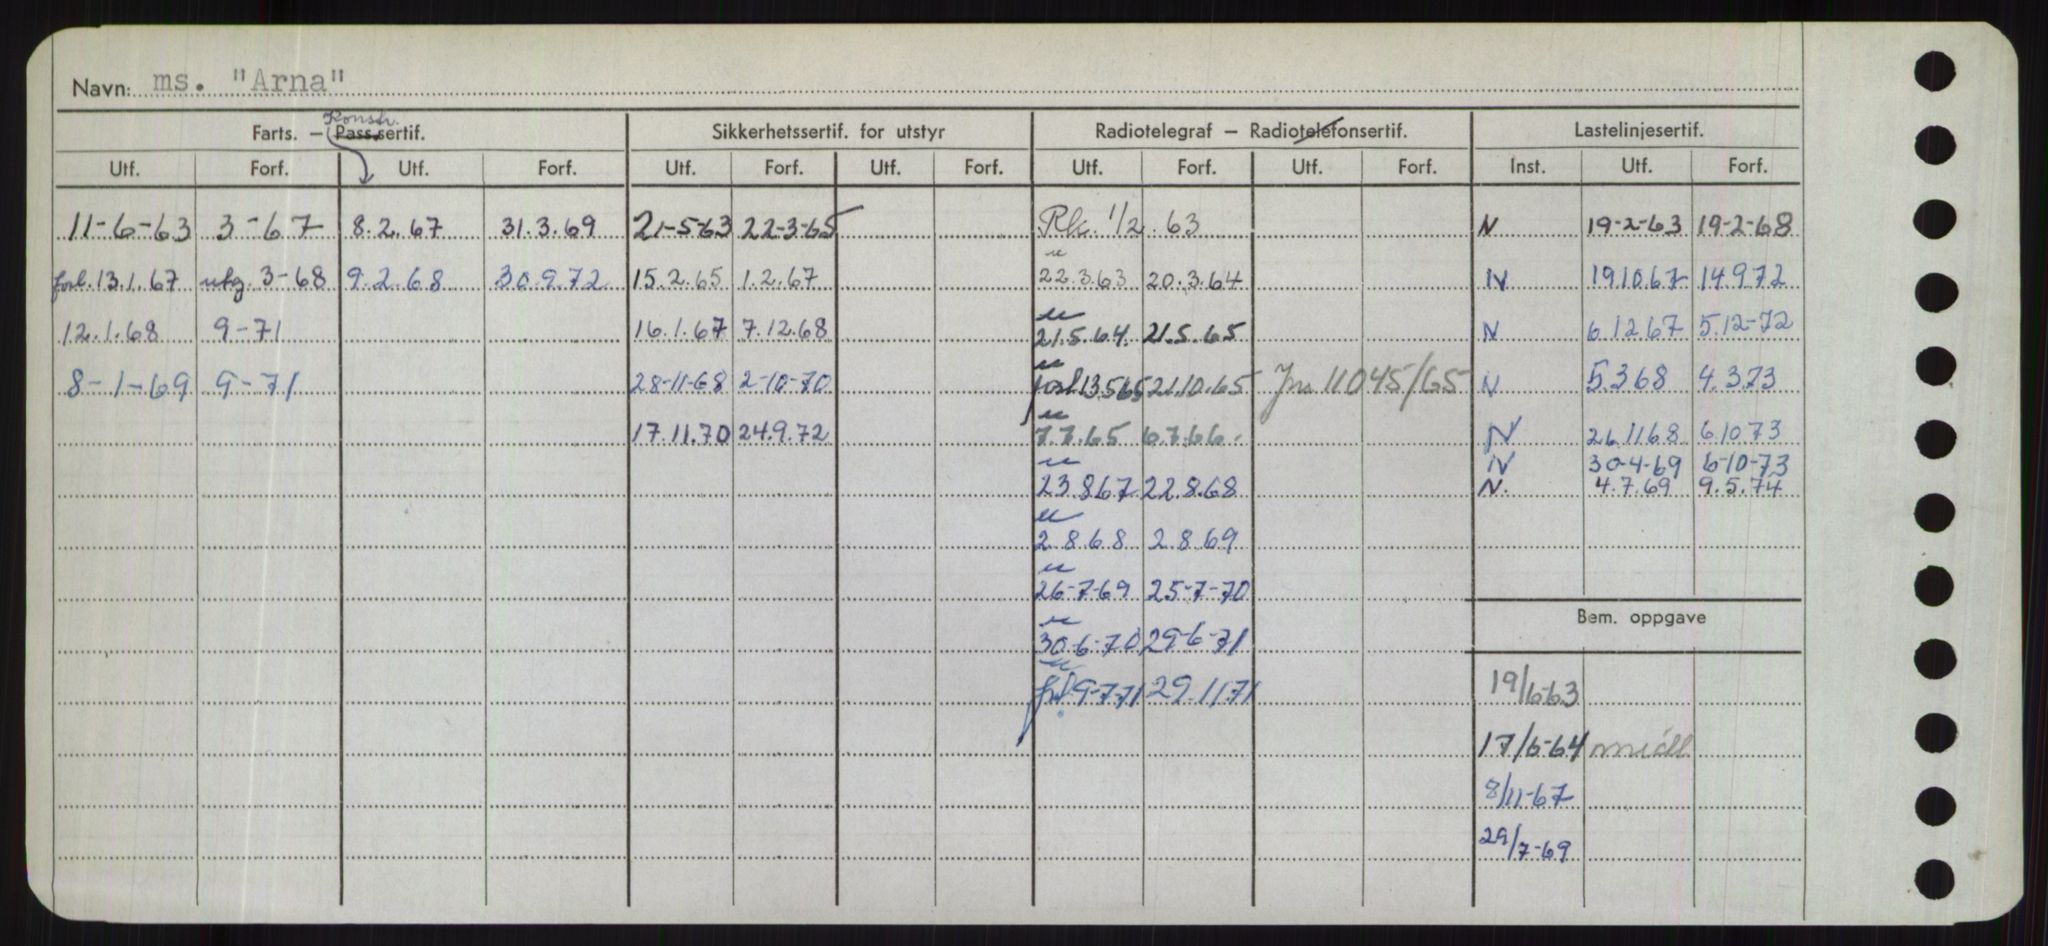 Navn: ms. "Arna"
Konstr.
Farts. – Pass.sertif. Sikkerhetssertif. for utstyr Radiotelegraf – Radiotelefonsertif. Lastelinjesertif.
Utf. Forf. Utf. Forf. Utf. Forf. Utf. Forf. Utf. Forf. Utf. Forf. Inst. Utf. Forf.
11-6-63 3-67 8.2.67 31.3.69 21-5-63 22-3-65 Rk. 1/2.63 N 19-2-63 19-2-68
forl. 13.1.67 utg. 3-68 9.2.68 30.9.72 15.2.65 1.2.67 22.3.63 20.3.64 N 19.10.67 14.9.72
12.1.68 9-71 16.1.67 7.12.68 21.5.64. 21.5.65 N 6.12.67 5.12-72
8-1-69 9-71 28-11-68 2-10-70 forl 13.5.65 21.10.65 Jnr 11045/65 N 5.3.68 4.3.73
17.11.70 24.9.72 7.7.65 6.7.66. N 26.11.68 6.10.73
N 30-4-69 6-10-73
23.8.67 22.8.68 N. 4.7.69 9.5.74
2.8.68 2.8.69
26-7-69 25-7-70
Bem. oppgave
30-6-70 29-6-71
9-7-71 29.11.71 19/6-63
17/6-64
8/11-67
29/7-69